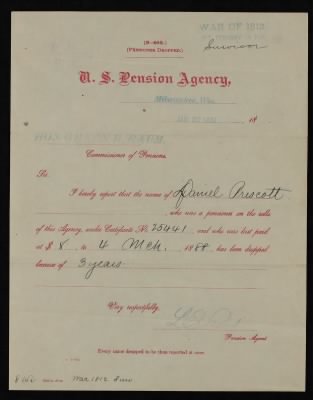 (3-499.)
(PENSIONER DROPPED.)
WAR OF 1812.
Survivor
U. S. Pension Agency,
Milwaukee, Wis.
18
HON. GREEN B. RAUM,
Commissioner of Pensions.
Sir:
I hereby report that the name of Daniel Prescott
who was a pensioner on the rolls
of this Agency, under Certificate No. 25441 and who was last paid
at $ 8, to 4 Mch, 1888, has been dropped
because of 3 years
Very respectfully,
Pension Agent.
Every name dropped to be thus reported at once.
War 1812